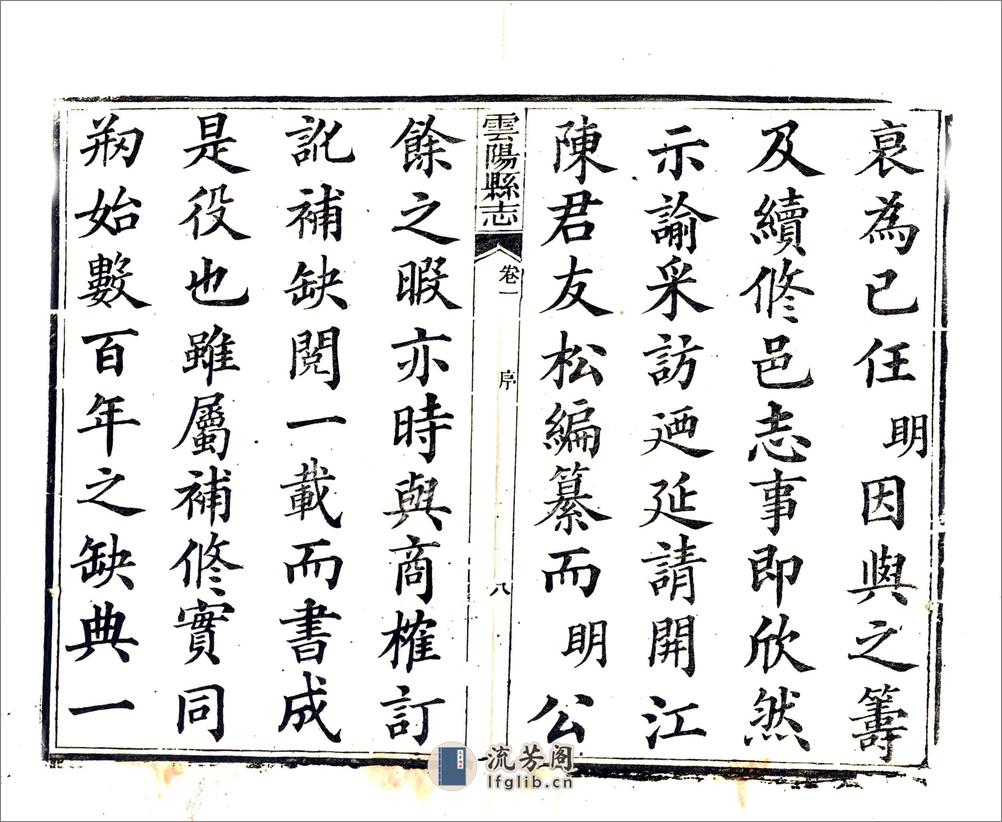 裒為已任明因與之籌
及續修邑志事即欣然
示諭采訪廼延請開江
陳君友松編纂而明公
雲陽縣志 卷一 序 八
餘之暇亦時與商榷訂
訛補缺閱一載而書成
是役也雖屬補修實同
刱始數百年之缺典一
流芳阁
lfglib.cn